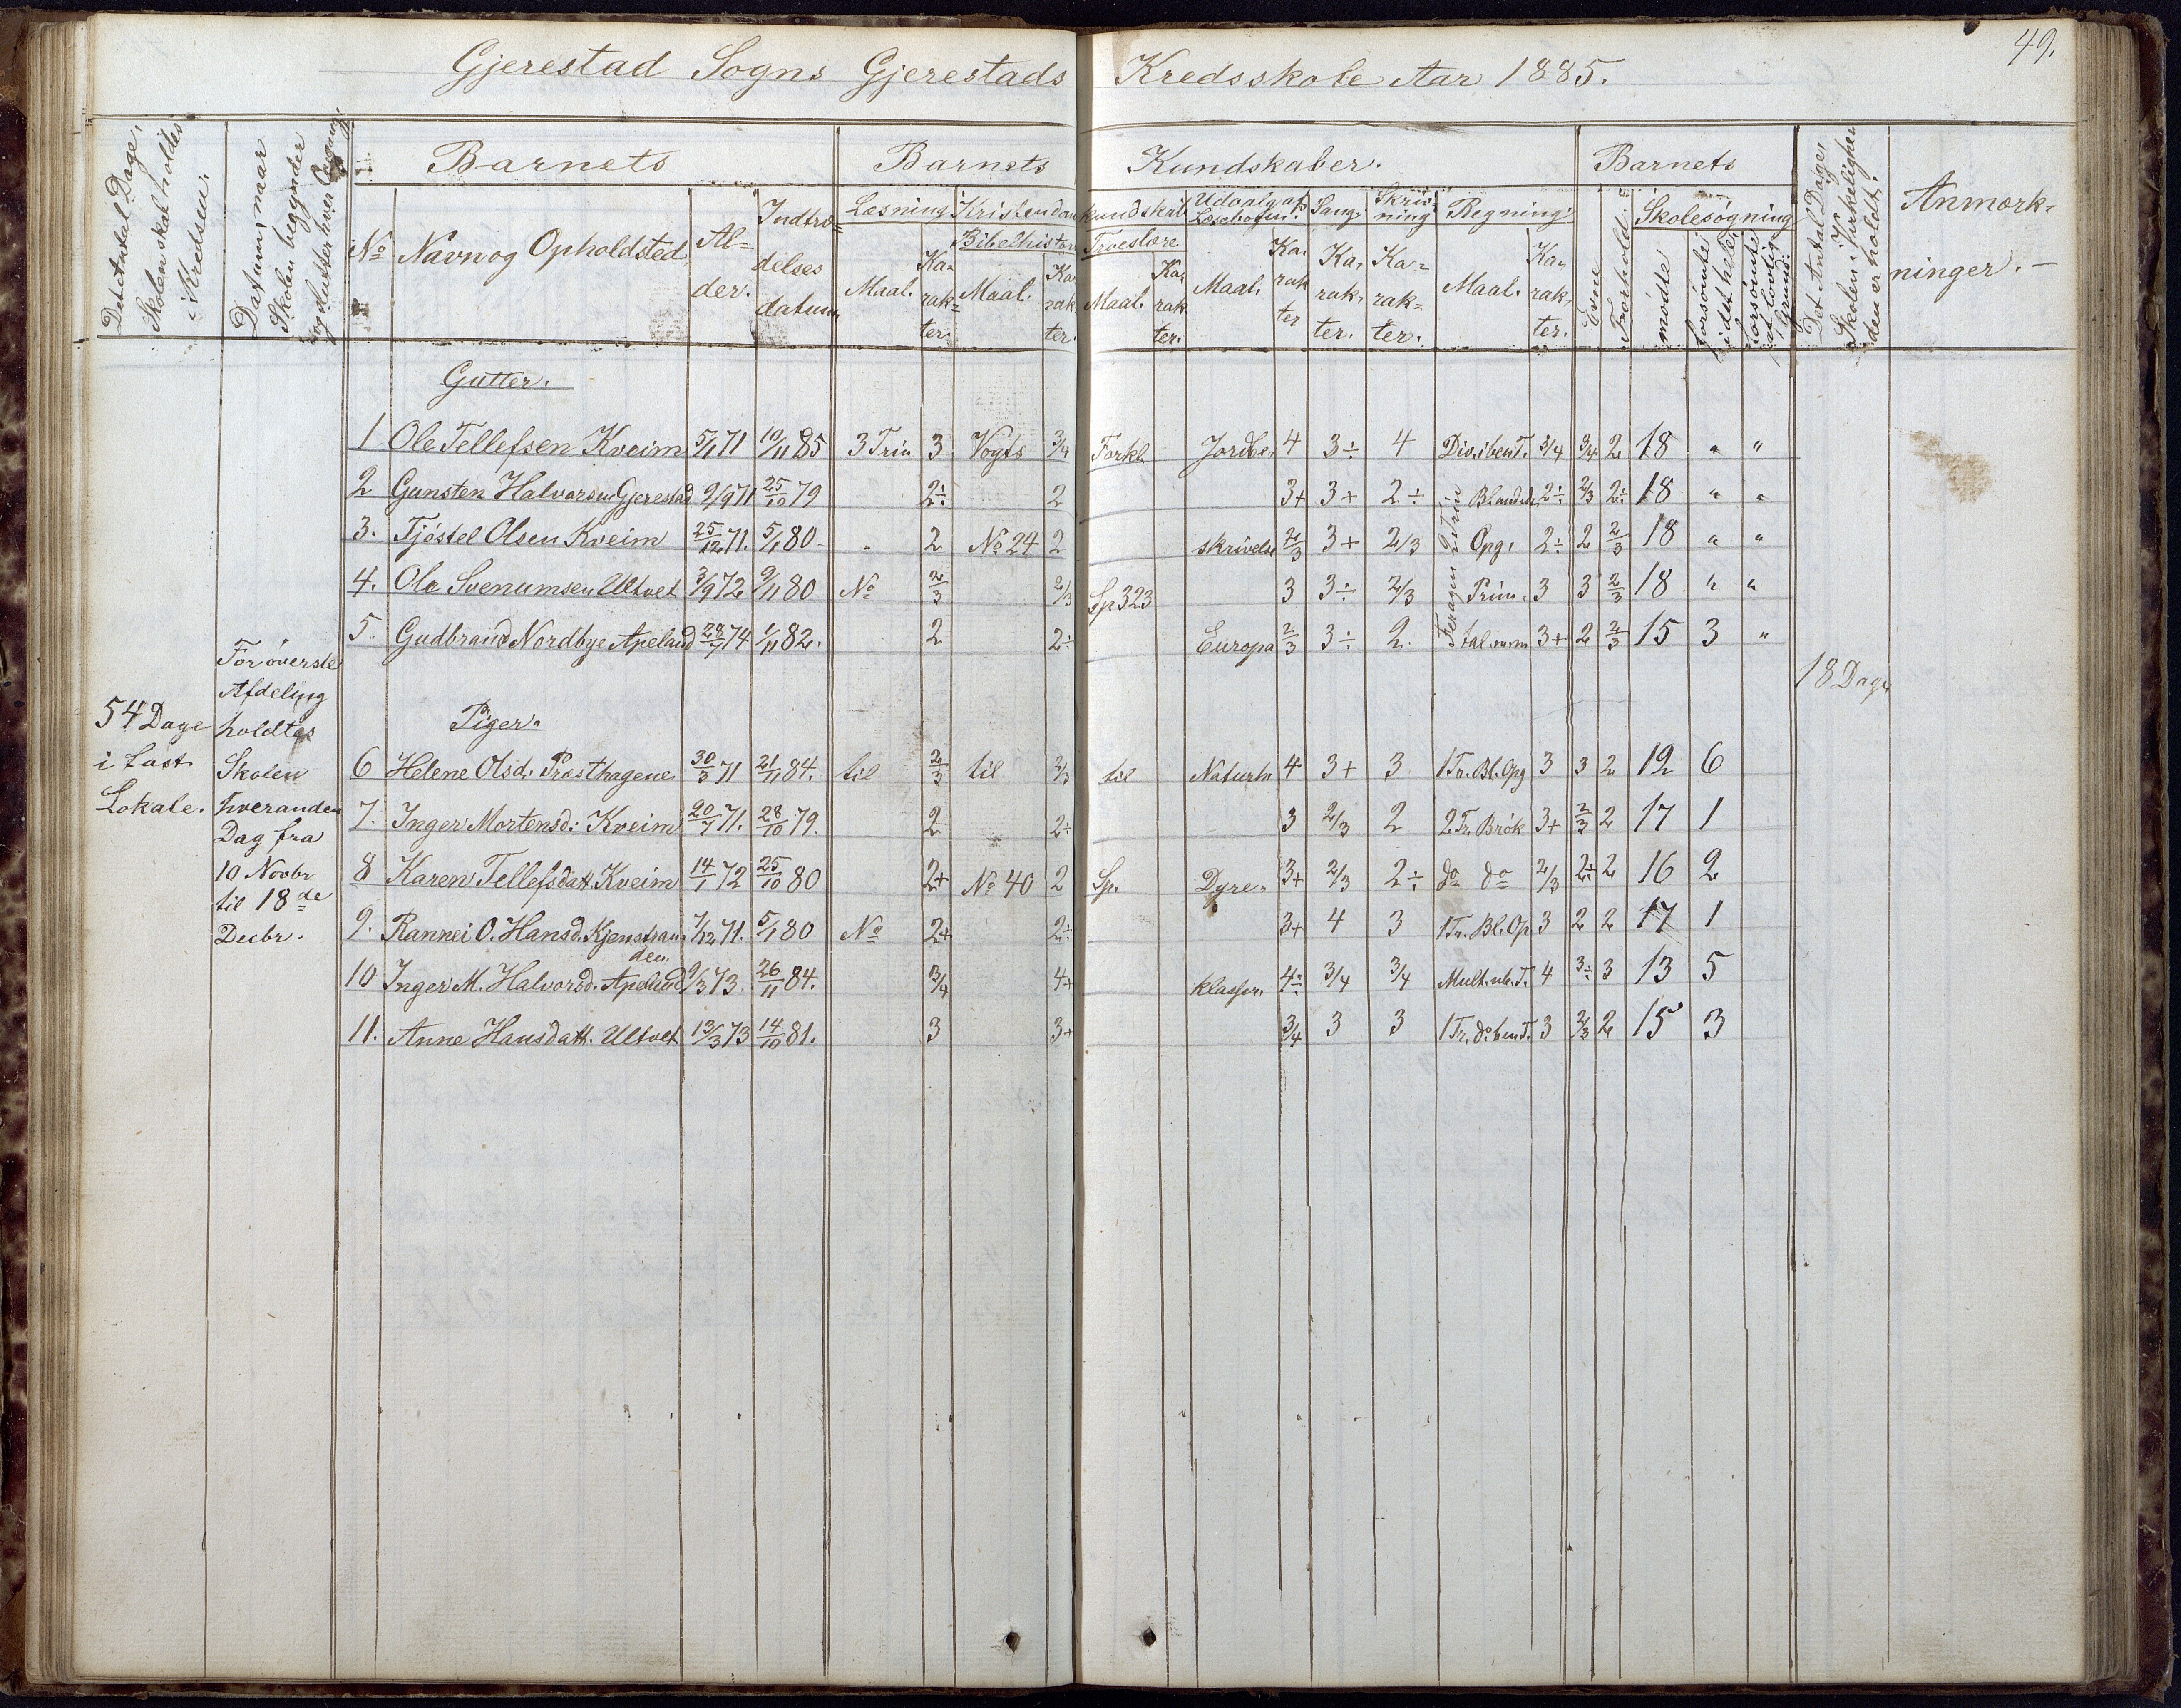 49.
Gjerestad Sogns Gjerestads Kredsskole Aar 1885.
Det Antal Dage, Skolen skal holdes i Kredsen.
Datum, naar Skolen begynder og slutter hver Omgang
Barnets
Barnets Kundskaber.
Barnets
Det Antal Dage, Skolen i Virkeligheden er holdt.
Anmærkninger. —
No
Navn og Opholdsted
Alder.
Indtrædelses datum
Læsning
Kristendomskundskab
Udvalg af Læsebogen.
Sang.
Skrivning
Regning.
Evne
Forhold
Skolesøgning
Bibelhistorie
Troeslære
Maal. Karakter.
Maal. Karakter.
Maal. Karakter.
Maal. Karakter
Karakter.
Karakter.
Maal. Karakter.
mødte
forsømte i det hele
forsømte af lovlig Grund.
Gutter.
1 Ole Tellefsen Kveim 5/1 71 10/11 85 3 Trin 3 Vogts 3/4 Forkl. Jordbe. 4 3÷ 4 Div. i ben. T. 3/4 3/4 2 18 " "
2 Gunsten Halvorsen Gjerestad 9/9 71 25/10 79 2÷ 2 3+ 3+ 2÷ Blandede 2÷ 2/3 2÷ 18 " "
3. Tjöstel Olsen Kveim 25/12 71. 5/1 80 - " 2 No 24 2 skrivelse 2/3 3+ 2/3 Opg. 2÷ 2 2/3 18 " "
4. Ola Svenumsen Ultvet 3/9 72 9/11 80 No 2/3 2/3 Sp 323 3 3÷ 2/3 Prim. 3 3 2/3 18 " "
5. Gudbrand Nordbye Apeland 28/7 74 1/11 82. 2 2÷ Europa 2/3 3÷ 2. tal. 3+ 2 2/3 15 3 "
2 Trin
54 Dage
i fast
Lokale.
For överste
Afdeling
holdtes
Skolen
hveranden
Dag fra
10 Novbr
til 18de
Decbr.
18 Dage
Piger.
6 Helene Olsd. Præsthagene 30/3 71 21/11 84. til 2/3 til 2/3 til Naturh 4 3+ 3 1 Tr. Bl. Opg 3 3 2 12 6
7. Inger Mortensd: Kveim 20/7 71. 28/10 79. 2 2÷ 3 2/3 2 2 Tr. Brök 3+ 2/3 2 17 1
8 Karen Tellefsdatt. Kveim 14/1 72 25/10 80 2+ No 40 2 Sp. Dyre- 3+ 2/3 2÷ do do 2/3 2÷ 2 16 2
9. Rannei O. Hansd. Kjenstranden. 7/12 71. 5/1 80 No 2+ 2÷ 3+ 4 3 1 Tr. Bl. Op 3 2 2 17 1
10 Inger M. Halvorsd. Apelund 9/3 73. 26/11 84. 3/4 4+ klasser. 4÷ 3/4 3/4 Mult. ub. T. 4 3÷ 3 13 5
11. Anne Hansdatt. Ultvet 13/3 73 14/10 81. 3 3+ 3/4 3 3 1 Tr. d. ben T. 3 2/3 2 15 3